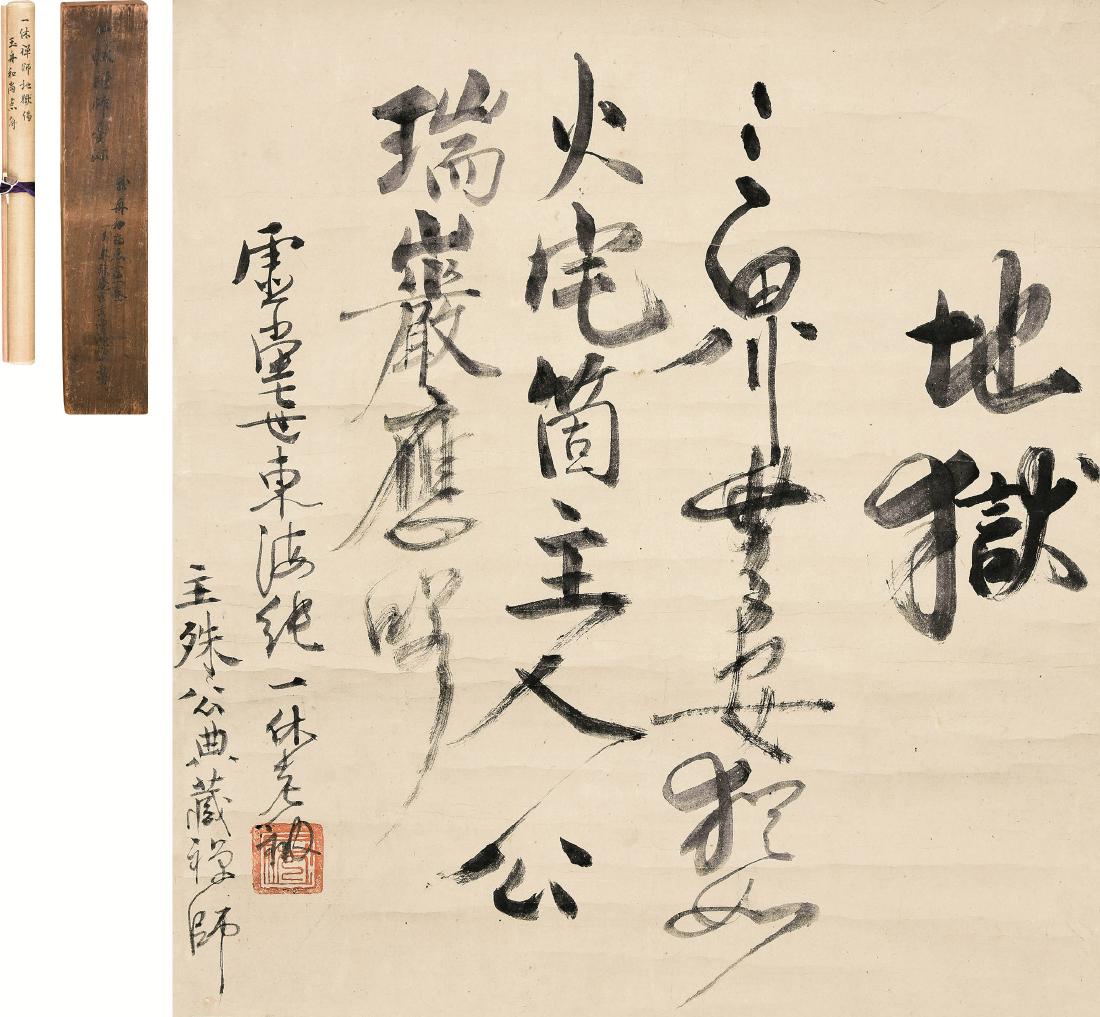 地獄
三界無安猶如
火宅箇主人公
瑞巖應諾
虛堂七世東海純一休老衲
主殊公典藏禅師
一休禅師地獄偈
玉舟和尚